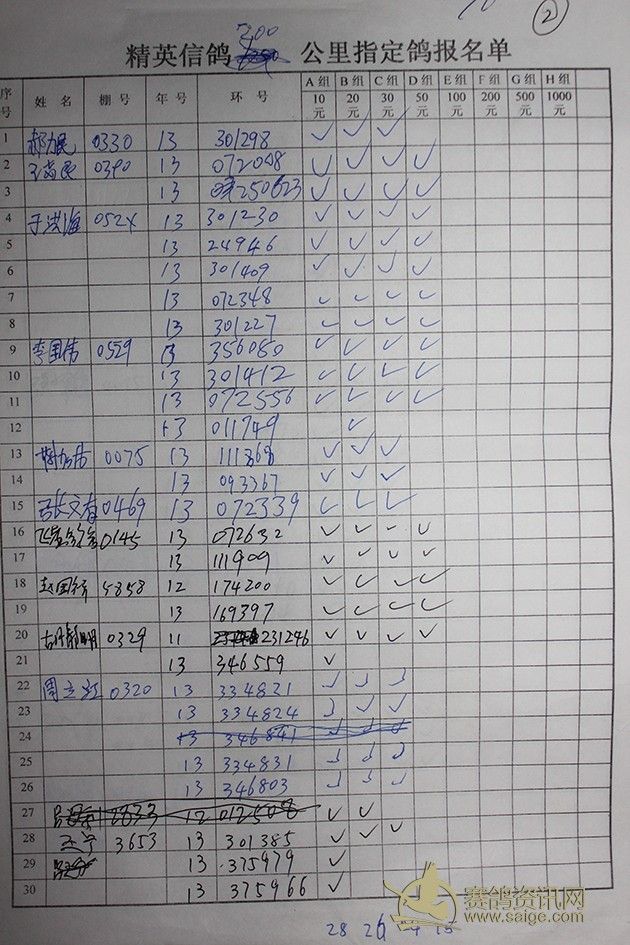 ②
精英信鸽 300 公里指定鸽报名单
序号 姓名 棚号 年号 环号 A组10元 B组20元 C组30元 D组50元 E组100元 F组200元 G组500元 H组1000元
1 0330 13 301298 ✓ ✓ ✓
2 0390 13 072008 ✓ ✓ ✓ ✓
3 13 250623 ✓ ✓ ✓ ✓
4 于洪海 052X 13 301230 ✓ ✓ ✓ ✓
5 13 24946 ✓ ✓ ✓ ✓
6 13 301409 ✓ ✓ ✓ ✓
7 13 072348 ✓ ✓ ✓ ✓
8 13 301227 ✓ ✓ ✓ ✓
9 李国伟 0529 13 356080 ✓ ✓ ✓ ✓
10 13 301412 ✓ ✓ ✓ ✓
11 13 072556 ✓ ✓ ✓ ✓
12 13 011749 ✓
13 0075 13 111368 ✓ ✓ ✓
14 13 093367 ✓ ✓ ✓
15 张文有 0469 13 072339 ✓ ✓ ✓
16 0145 13 072632 ✓ ✓ ✓ ✓
17 13 111909 ✓ ✓ ✓ ✓
18 5858 12 174200 ✓ ✓ ✓ ✓
19 13 169397 ✓ ✓ ✓ ✓
20 0329 11 231246 ✓ ✓ ✓ ✓
21 13 346559 ✓
22 周立红 0320 13 334821 ✓ ✓ ✓
23 13 334824 ✓ ✓ ✓
24 13 346841 ✓ ✓ ✓
25 13 334831 ✓ ✓ ✓
26 13 346803 ✓ ✓ ✓
27 2833 12 012508 ✓ ✓
28 王宁 3653 13 301385 ✓ ✓ ✓
29 13 375979 ✓
30 13 375966 ✓
28 26 24 15
赛鸽资讯网
www.saige.com